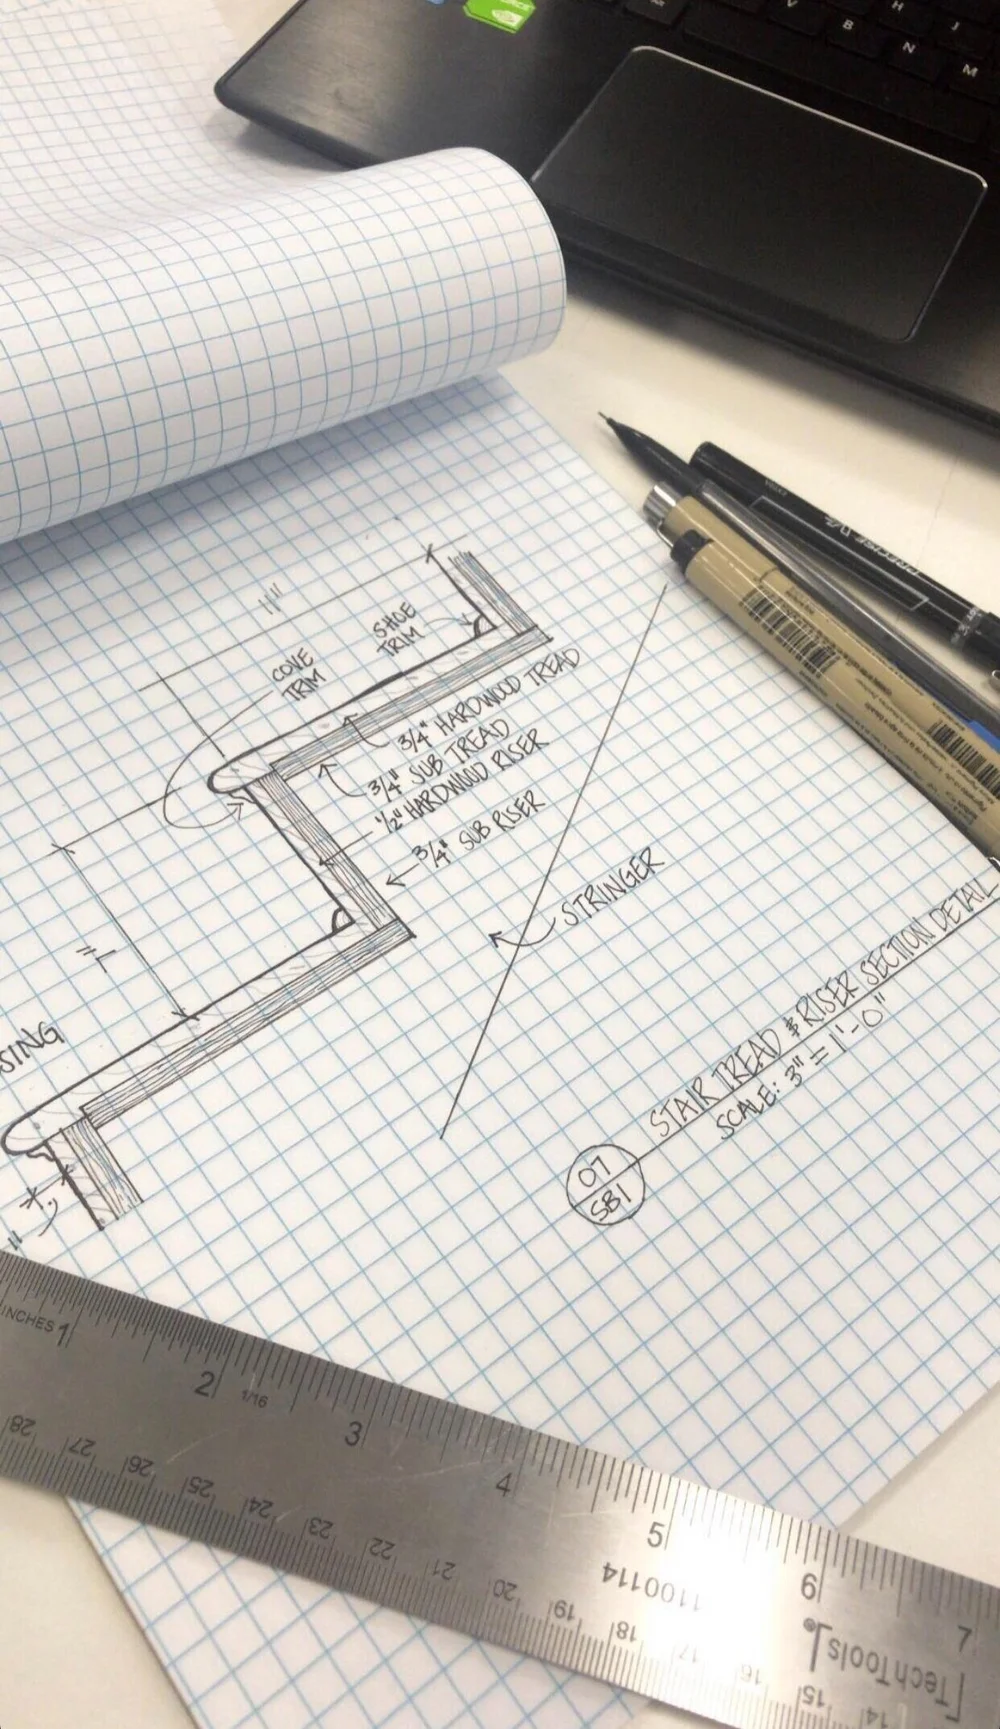 V
H
J
B
N
M
11"
SHOE
TRIM
COVE
TRIM
3/4" HARDWOOD TREAD
3/4" SUB TREAD
1/2" HARDWOOD RISER
3/4" SUB RISER
STRINGER
7"
SING
1"
STAIR TREAD & RISER SECTION DETAIL
SCALE: 3" = 1'-0"
07
SB1
INCHES 1 2 3 4 5 6 7
1/16
28 27 26 25 24 23 22 21 20 19 18 17 16 15 14
1100114
TechTools